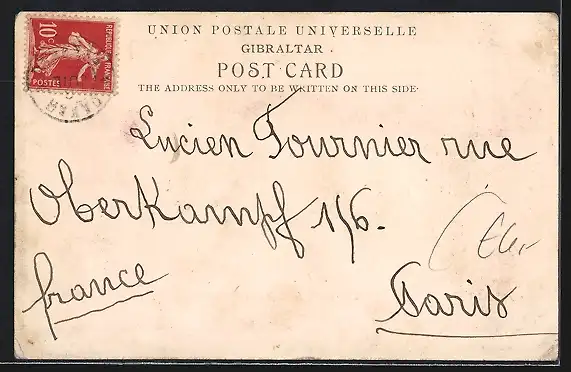 UNION POSTALE UNIVERSELLE
GIBRALTAR.
POST CARD
THE ADDRESS ONLY TO BE WRITTEN ON THIS SIDE.
10c
REPUBLIQUE FRANÇAISE
POSTES
Lucien Fournier rue
Oberkampf 156.
france
Paris